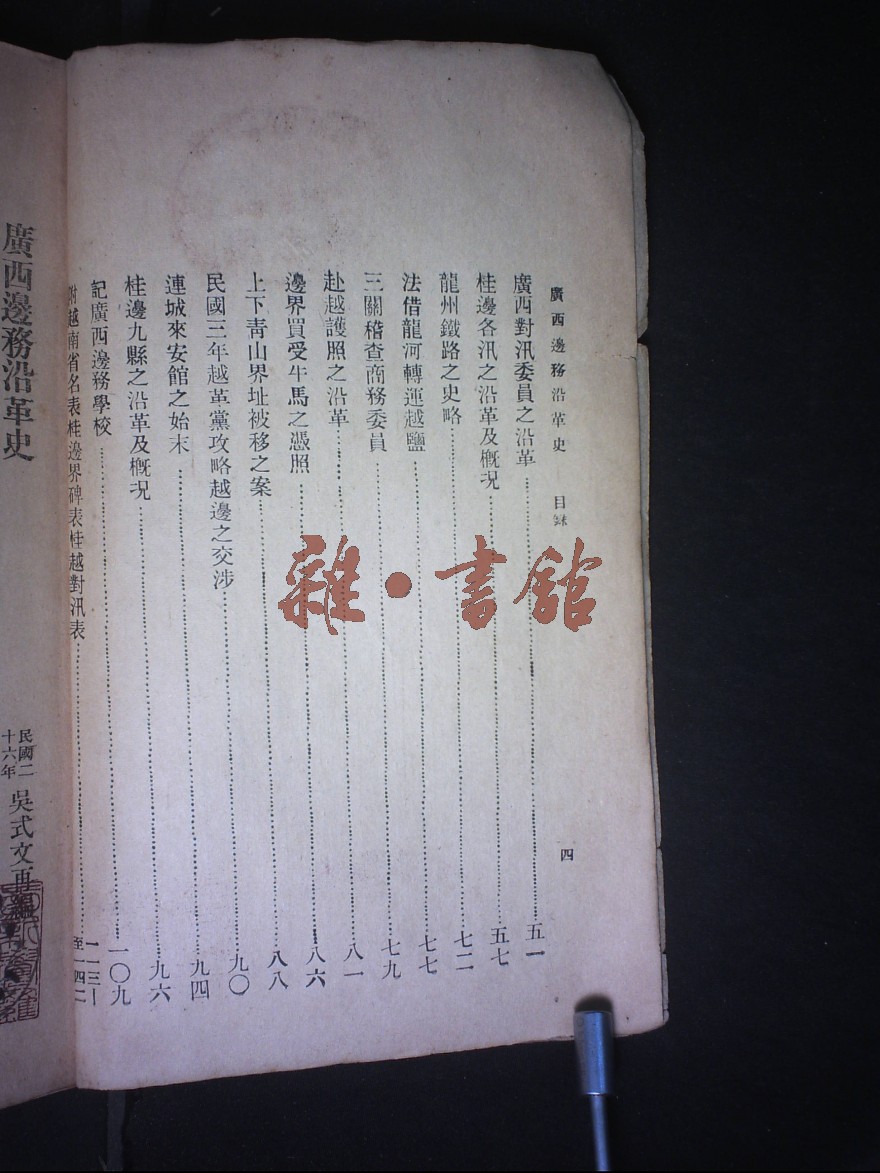 廣西邊務沿革史 目錄 四
廣西對汛委員之沿革……五一
桂邊各汛之沿革及概况……五七
龍州鐵路之史略……七二
法借龍河轉運越鹽……七七
三關稽查商務委員……七九
赴越護照之沿革……八一
邊界買受牛馬之憑照……八六
上下靑山界址被移之案……八八
民國三年越革黨攻略越邊之交涉……九〇
連城來安館之始末……九四
桂邊九縣之沿革及概况……九六
記廣西邊務學校……一〇九
附越南省名表桂邊界碑表桂越對汛表……一一三至一四二
廣西邊務沿革史
民國二十六年 吳式文再
雜·書館